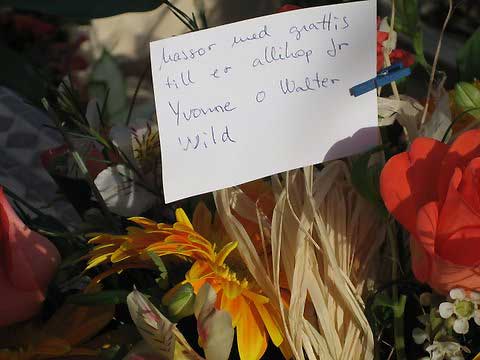 Massor med grattis
till er allihop fr
Yvonne o Walter
Wild